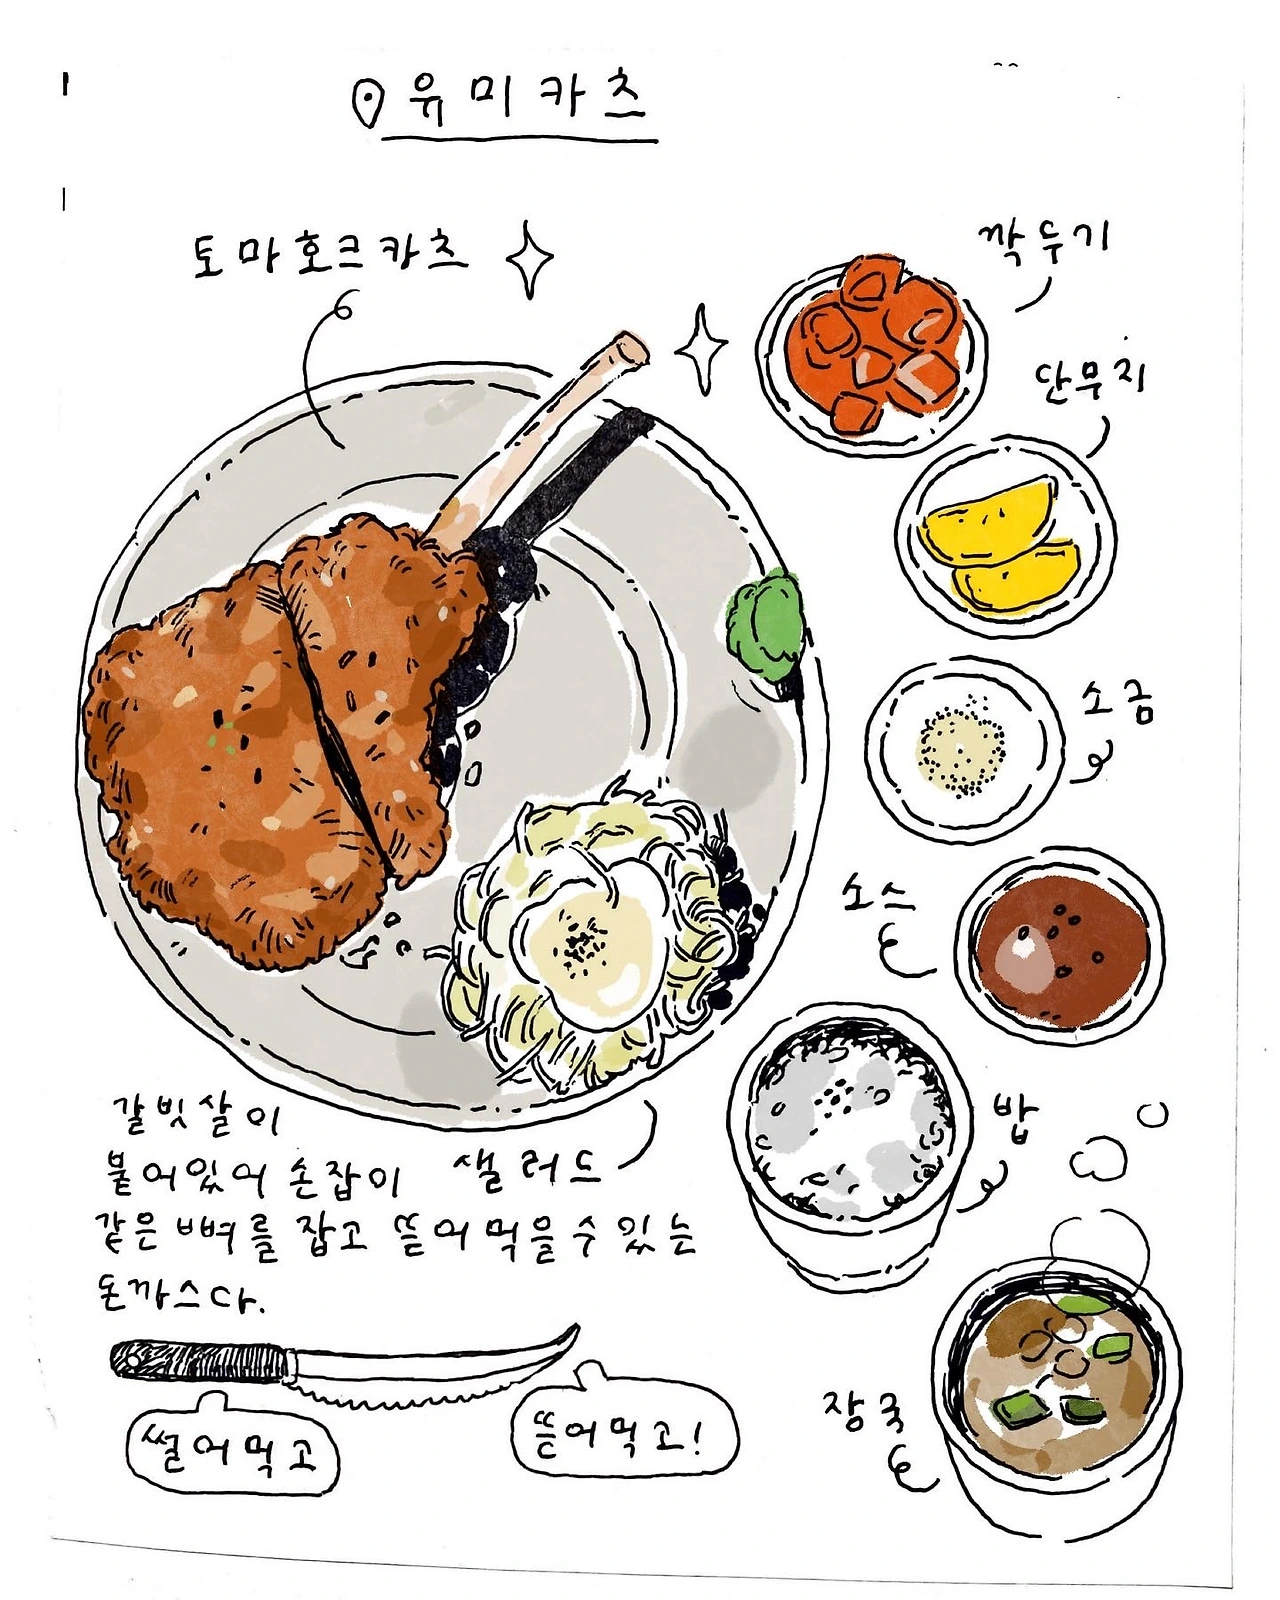 유미카츠
토마호크카츠
깍두기
단무지
소금
소스
밥
장국
샐러드
갈빗살이
붙어있어 손잡이
같은 뼈를 잡고 뜯어먹을수있는
돈까스다.
썰어먹고
뜯어먹고!